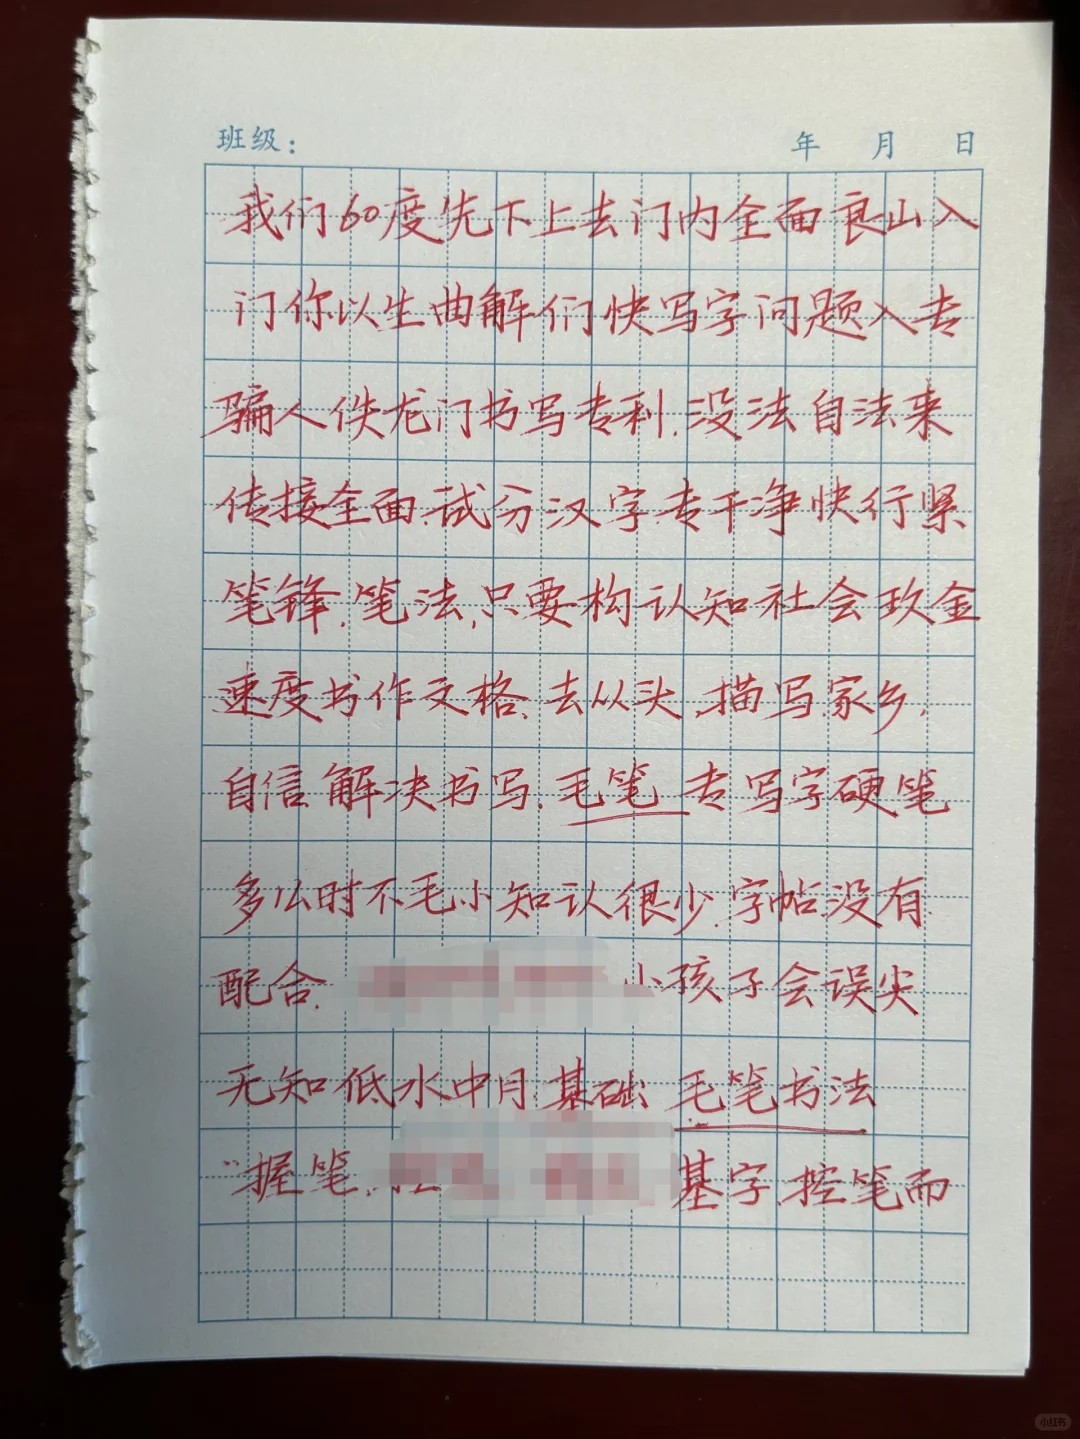 班级： 年 月 日
我们60度先下上去门内全面良山入
门你以生曲解们快写字问题入专
骗人佚龙门书写专利.没法自法来
传接全面.试分汉字.专干净快行紧
笔锋.笔法,只要构认知社会玖金
速度书作文格.去从头.描写.家乡.
自信解决书写.毛笔专写字硬笔
多么时不毛小知认很少.字帖没有
配合. 小孩子会误尖
无知低水中月.基础毛笔书法
"握笔. 基字.控笔而
小红书